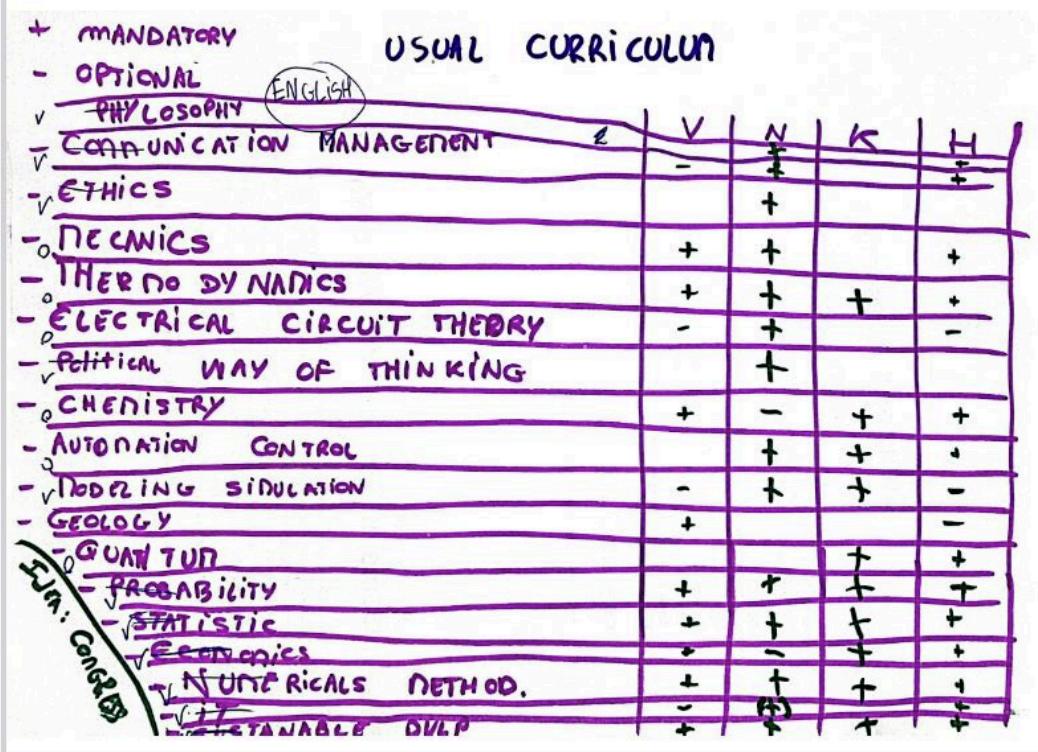 + MANDATORY
USUAL CURRICULUM
- OPTIONAL
ENGLISH
V N K H
v PHYLOSOPHY + +
v COMMUNICATION MANAGEMENT 2 - + +
- v ETHICS +
- o MECANICS + + +
- o THERMO DYNAMICS + + + +
- o ELECTRICAL CIRCUIT THEORY - + -
- v Political WAY OF THINKING +
- o CHEMISTRY + - + +
- o AUTOMATION CONTROL + + +
- v MODELING SIMULATION - + + -
- GEOLOGY + -
- o QUANTUM + +
- v PROBABILITY + + + +
- v STATISTIC + + + +
- v Economics + - + +
- v NUMERICALS METHOD. + + + +
- v IT - (+) +
TANABLE + + + +
IDEA: CONGRESS